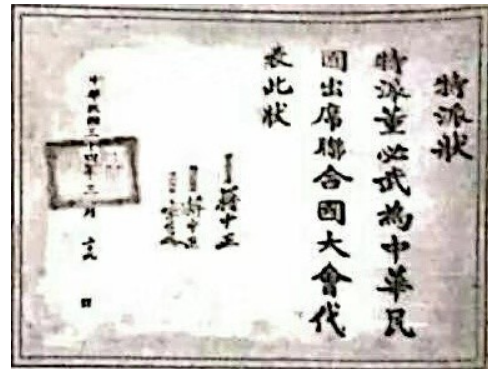 特派狀
特派董必武為中華民
國出席聯合國大會代
表此狀
蔣中正
蔣中正
中華民國三十四年三月 日